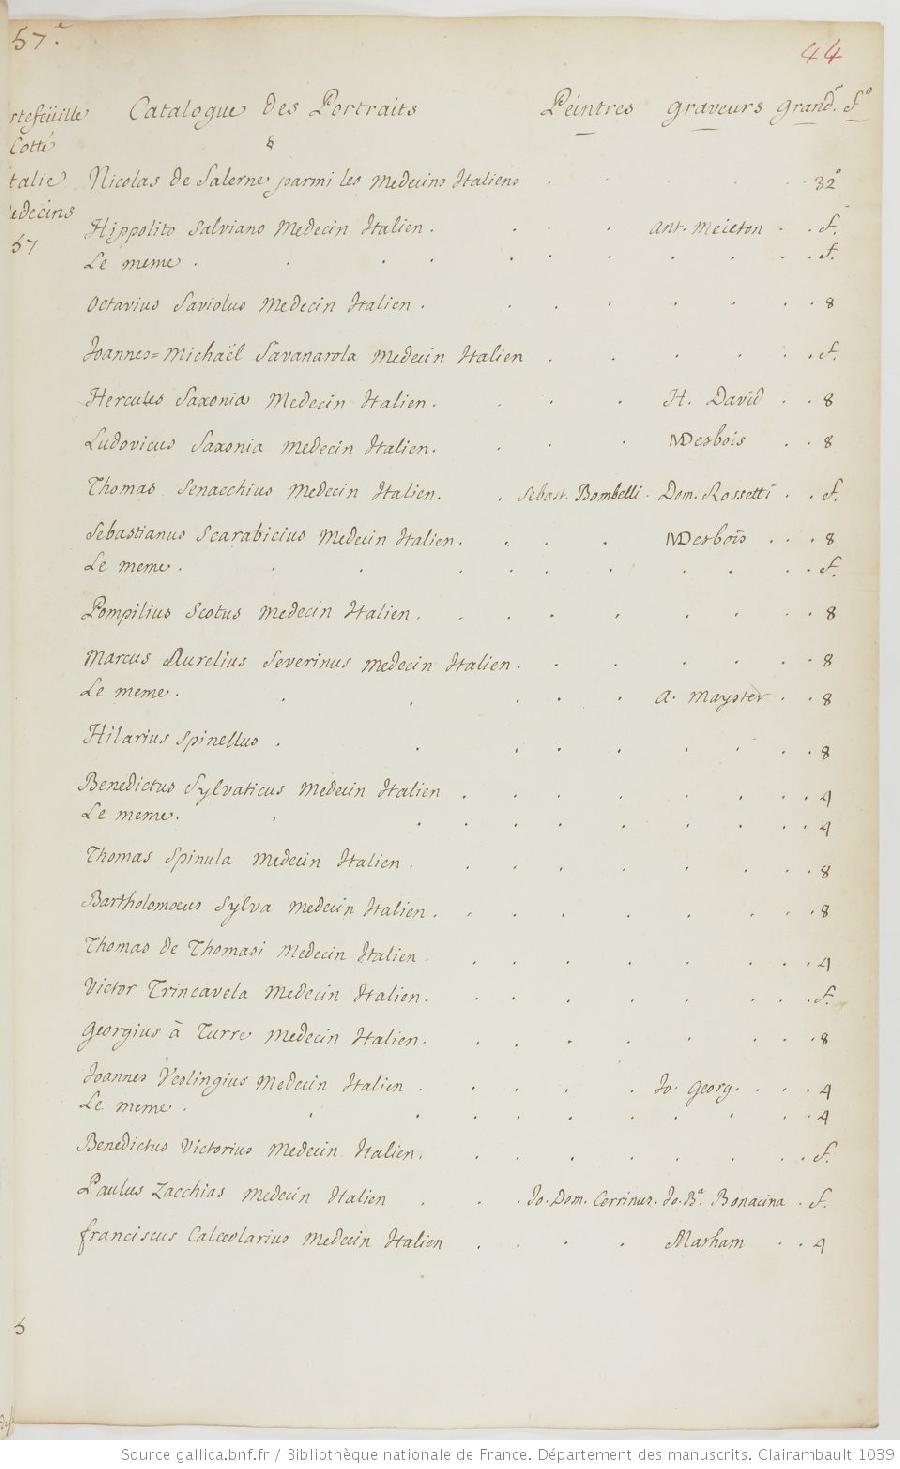 57.e
44
rtefeüille Catalogue des Portraits Peintres graveurs grand.r f.o
Cotté &
talie Nicolas de Salerne parmi les Medecins Italiens 32.o
edecins
57
Hippolito Salviano Medecin Italien. Ant. Meieton f.
Le meme. f.
Octavius Saviolus Medecin Italien. 8
Joannes=Michaël Savanarola Medecin Italien f.
Hercules Saxonia Medecin Italien. H. David 8
Ludovicus Saxonia Medecin Italien. MDesbois 8
Thomas Senacchius Medecin Italien. Sebast. Bombelli. Dom. Rossetti f.
Sebastianus Scarabicius Medecin Italien. MDesbois 8
Le meme. f.
Pompilius Scotus Medecin Italien. 8
Marcus Aurelius Severinus Medecin Italien. 8
Le meme. A. Mayster 8
Hilarius Spinellus. 8
Benedictus Sylvaticus Medecin Italien 4
Le meme. 4
Thomas Spinula Medecin Italien 8
Bartholomoeus Sylva Medecin Italien. 8
Thomas de Thomasi Medecin Italien 4
Victor Trincavela Medecin Italien. f.
Georgius à Turre Medecin Italien. 8
Joannes Veslingius Medecin Italien Jo. Georg. 4
Le meme. 4
Benedictus Victorius Medecin Italien. f.
Paulus Zacchias Medecin Italien Jo. Dom. Cerrinus. Jo. B.a Bonacina f.
Franciscus Calceolarius Medecin Italien Marham 4
5
Source gallica.bnf.fr / Bibliothèque nationale de France. Département des manuscrits. Clairambault 1039